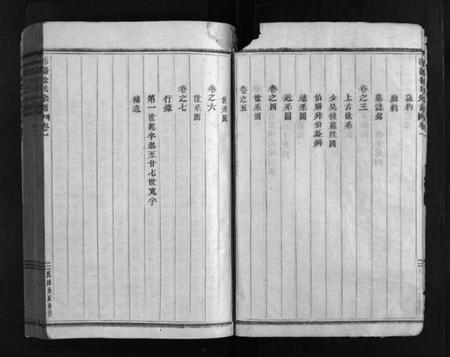 詠約
勸約
卷之三
墓誌銘
上古世系
少昊後嬴姓圖
伯翳非伯益辨
遠系圖
近系圖
卷之四
世系圖
卷之五
世系圖
卷之六
世系圖
卷之七
行錄
第一世乾字起至廿七世寬字
補遺